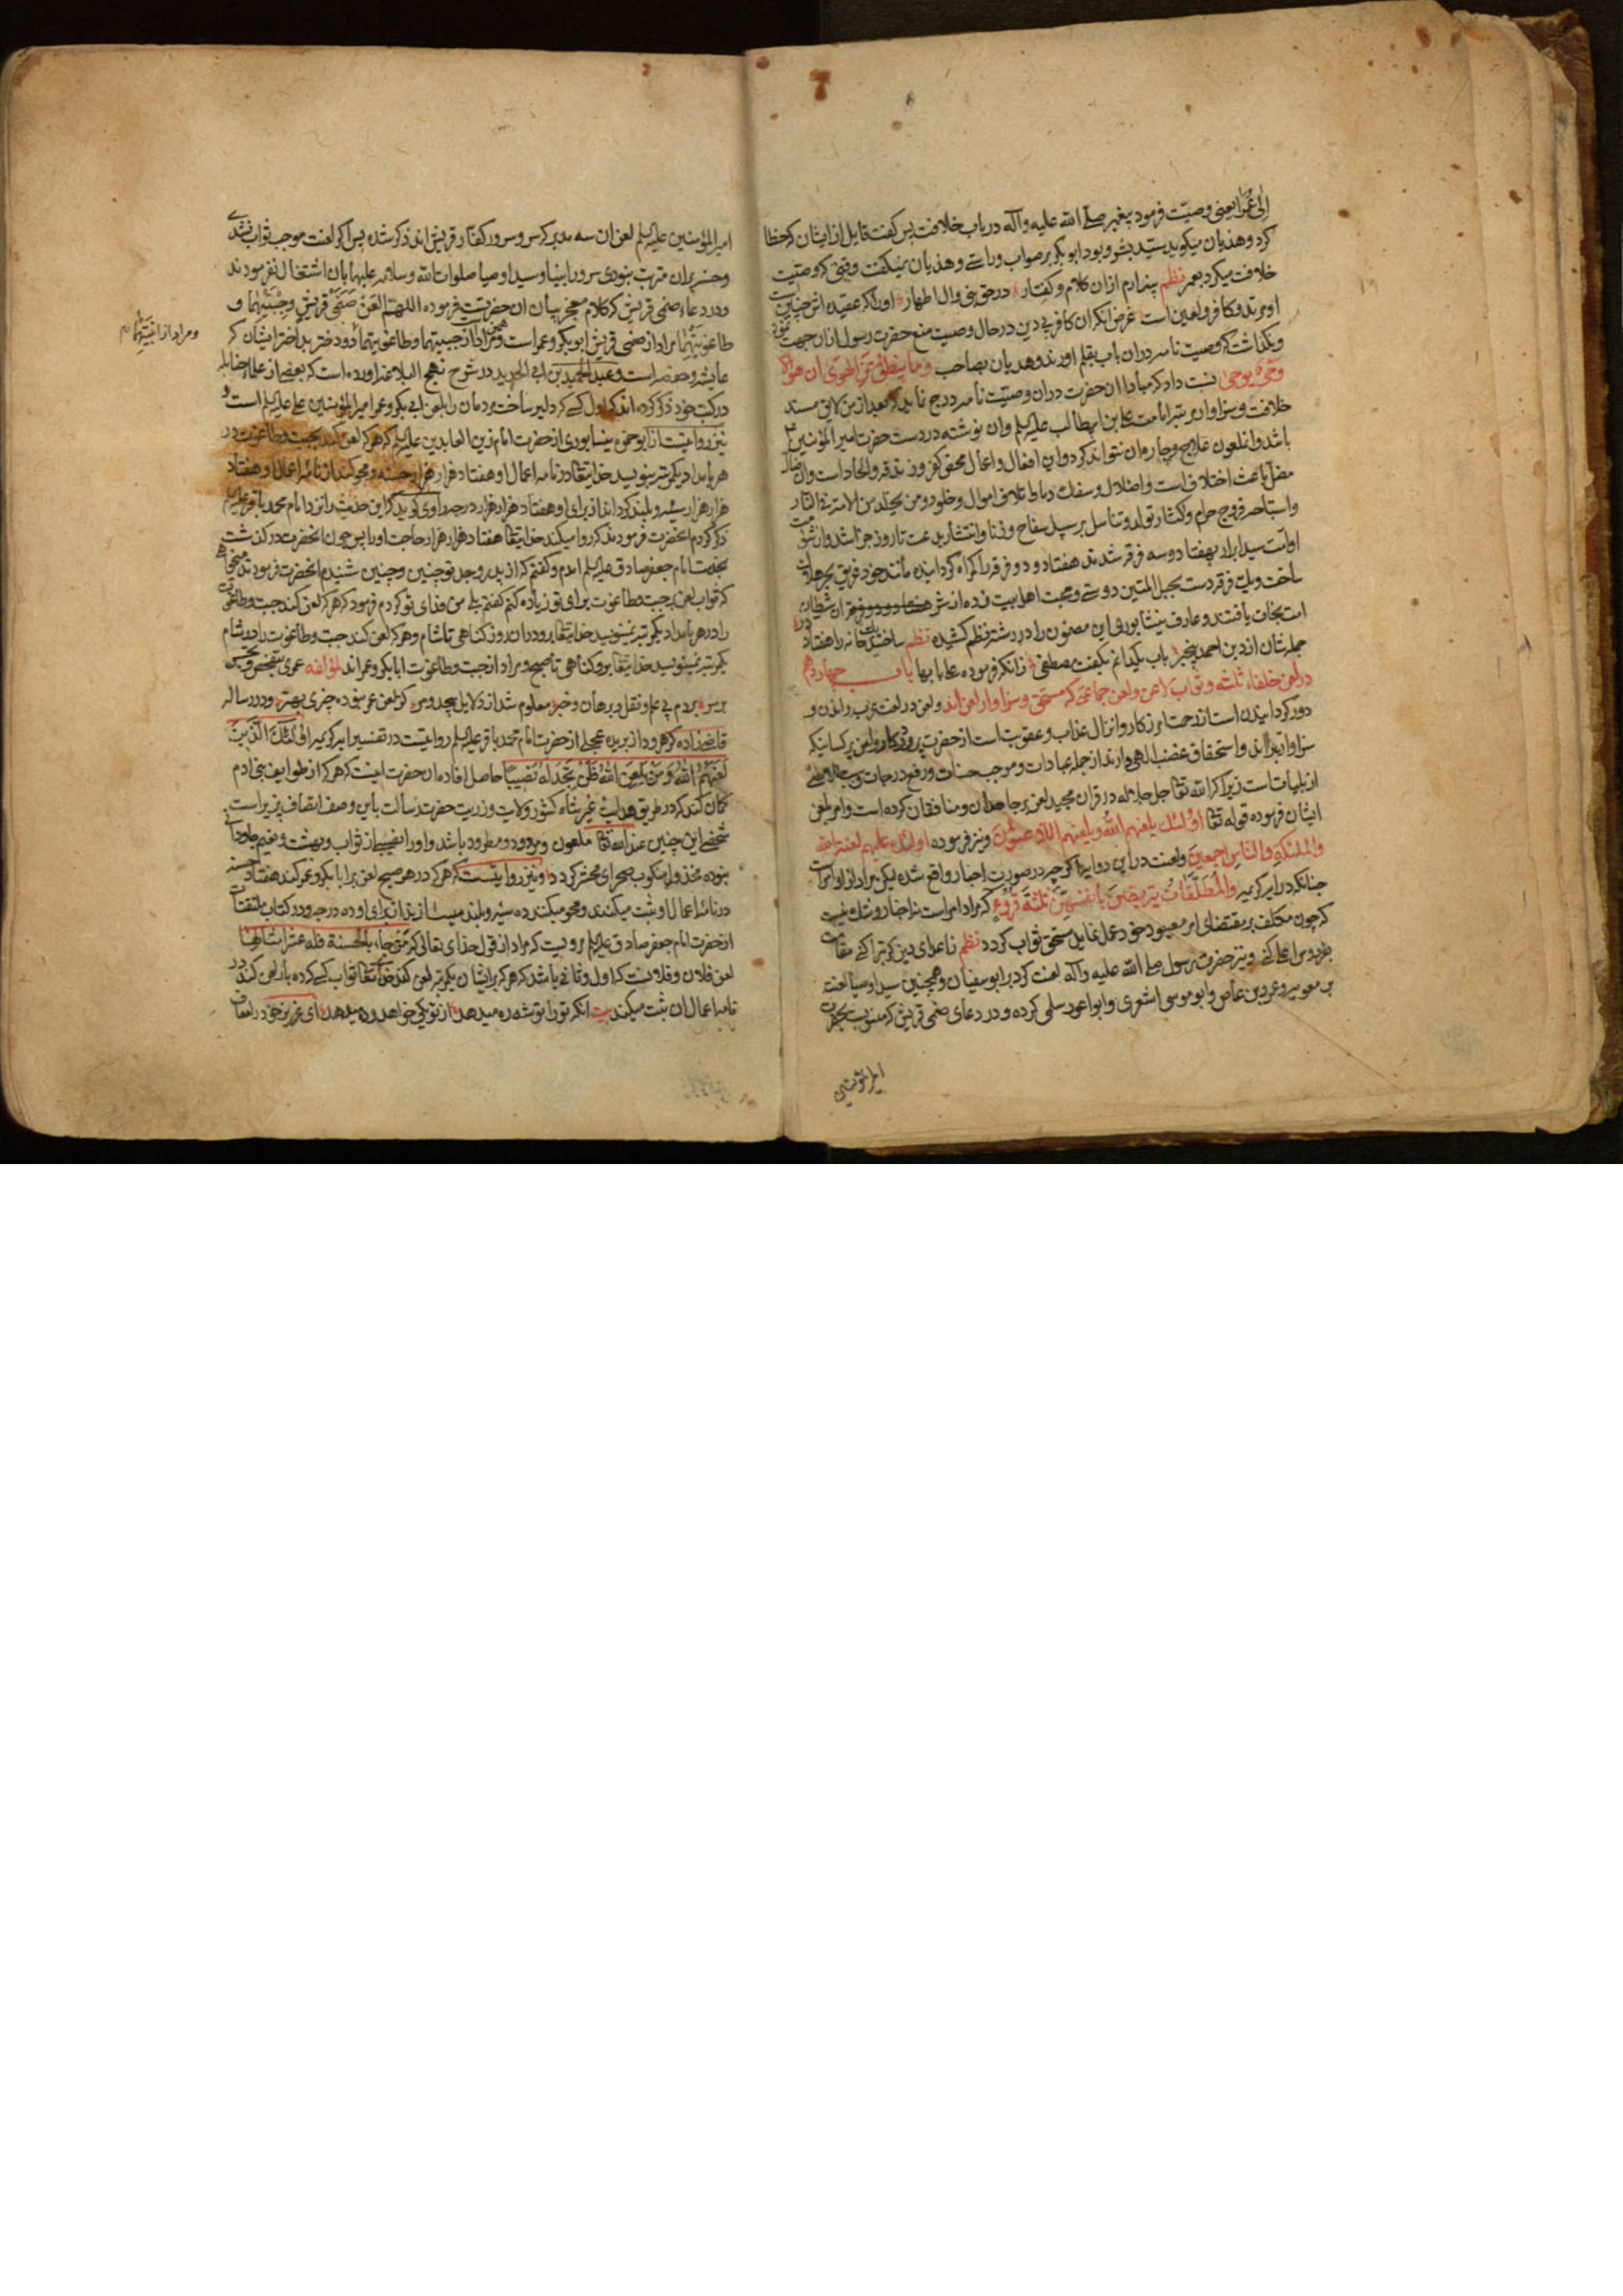 الی عمر یعنی وصیّت فرمود پیغمبر صلّے الله علیه وآله در باب خلافت پس گفت قایل از ایشان که خطا
کرد و هذیان میگوید سید بشر و بود ابو بکر بر صواب و راستے و هذیان نمیگفت وقتی که وصیّت
خلافت میکرد بعمر نظم بیزارم ازان کلام و گفتار در حق نبی وال اطهار او را که عقیده اش چنانست
او مرتد و کافر و لعین است غرض انکه ان کافر بی دین در حال وصیت منع حضرت رسول ازان جهت نمود
و نگذاشت که وصیت نامه دران باب بقلم اورند و هذیان بصاحب وما ینطق عن الهوی ان هو الا
وحیٌ یوحی نسبت داد که مبادا ان حضرت دران وصیّت نامه درج نماید که بعد از من لایق مسند
خلافت و سزاوار مرتبه امامت علی بن ابیطالب علیه السلم وان نوشته در دست حضرت امیر المؤمنین
باشد و انملعون علاج و چاره ان نتواند کرد و این افعال و اعمال محض کفر و زندقه و الحاد است وان
فعل باعث اختلاف است و اضلال و سفک دما و اتلاف اموال و خلود و من یحلد من الامة فی النار
واستباحه فروج حرام و کثار تولد و تناسل بر سبیل سفاح و زنا و انتشار بدعت تا روز جزا شد وازشق
امّت سید ابرار بهفتاد و سه فرقه شدند هفتاد و دو فرقه را گمراه گردانیده مانند خود غریق بحر هلاک
ساخت و یک فرقه دست بحبل المتین دوستے و محبت اهل بیت زده از شر هفتاد و دو فرقه ان شیطان
امّت نجات یافتند و عارف نیشابوری این مضمون را در رشته نظم کشیده نظم ساختند یک خانه را هفتاد در
جمله شان از دین احمد بیخبر باب یکدانم بگفت مصطفی زانکه فرموده علیا بابها باب چهاردهم
در لعن خلفاء ثلثه و ثواب لاعن و لعن جماعتی که مستحق و سزاوار لعن اند و لعن در لغت عرب راندن و
دور کردانیدن است از رحمت افریدکار و انزال عذاب و عقوبت است از حضرت پروردکار و لعن بر کسانیکه
سزاوار تبرا اند و استحقاق غضب الهی دارند از جمله عبادات و موجب حسنات و رفع درجات و سبب
از بلیات است زیرا که الله تعا جل جلاله در قران مجید لعن بر جاحدان و منافقان کرده است و امر بلعن
ایشان فرموده قوله تعا اولئک یلعنهم الله و یلعنهم اللاعنون و نیز فرموده اولئک علیهم لعنة الله
والملئکة والناس اجمعین و لعنت در این دو ایه اگر چه در صورت اخبار واقع شده لیکن مراد ازو امر است
چنانکه در ایه کریمه والمطلقات یتربصن بانفسهن ثلثة قروء که مراد امر است نه اخبار و شک نیست
که چون مکلف بر مقتضای امر معبود خود عمل نماید مستحق ثواب گردد نظم ز اعدای دین گر تبرا کنے مقامت
بفردوس اعلی کنے و نیز حضرت رسول صلے الله علیه واله لعنت کرد بر ابو سفیان و همچنین سید اوصیا لعنت
بر معویه و عمرو بن عاص و ابو موسی اشعری و ابو اعور سلمی کرده و در دعای صنمی قریش که منسوب بحضرت
امیر المؤمنین
امیر المؤمنین علیه السلم لعن ان سه مدبر که سر و سرور کفار قریش اند ذکر شده پس اگر لعنت موجب ثواب نشدے
و حسن بران مترتب نبودی سرور انبیا و سید اوصیا صلوات الله و سلامه علیهما بان اشتغال نفرمودند
و در دعاء صنمی قریش که کلام معجز بیان ان حضرتست فرموده اللهم العن صنمی قریش و جبتیهما و
طاغوتیهما مراد از صنمی قریش ابو بکر و عمر است و همچنین مراد از جبتیهما و طاغوتیهما دو دختر بد اختر ایشان که
ومراد از ابنتیهما
عایشه و حفصه است و عبد الحمید بن ابی الحدید در شرح نهج البلاغه اورده است که بعضے از علماء حنابله
در کتب خود ذکر کرده اند که اول کسے که دلیر ساخت مردمان را بلعن ابی بکر و عمر امیر المؤمنین علے علیه السلم است و
نیز روایتست از ابو حمزه نیشابوری از حضرت امام زین العابدین علیه السلم که هر که لعن کند بجبت و طاغوت در
هر بامداد یکمرتبه بنویسد خدایتعا در نامه اعمال او هفتاد هزار هزار حسنه و محو کند از نامه اعمال او هفتاد
هزار هزار سیّئه و بلند کرداند از برای او هفتاد هزار هزار درجه راوی گوید که این حدیث را نزد امام محمد باقر علیه السلم
ذکر کردم انحضرت فرمودند که روا میکند خدایتعا هفتاد هزار هزار حاجت او را پس چون انحضرت درگذشت
بخدمت امام جعفر صادق علیه السلم امدم و گفتم که از پدر و جد تو چنین و چنین شنیدم انحضرت فرمودند میخواهی
که ثواب لعن بر جبت و طاغوت برای تو زیاده کنم گفتم بلے من فدای تو گردم فرمود که هر که لعن کند جبت و طاغوت
را در هر بامداد یکمرتبه ننویسد خدایتعا برو دران روز گناهی تا شام و هر که لعن کند جبت و طاغوت را در شام
یکمرتبه ننویسد خدایتعا برو گناهی تا صبح و مراد از جبت و طاغوت ابابکر و عمر اند لمؤلفه
بردم پے علم و نقل و برهان و خبر معلوم شد از دلایل بیحد و مر کز لعن عمر نبوده چیزی بهتر و در رساله
قاضی زاده کرهرود از برید عجلے از حضرت امام محمد باقر علیه السلم روایتست در تفسیر ایه کریمه اولئک الذین
لعنهم الله و من یلعن الله فلن تجد له نصیرا حاصل افاده ان حضرت اینست که هر که از طوایف بنی ادم
گمان کند که در طریق هدایت غیر شاه کشور ولایت و ذریت حضرت رسالت باین وصف اتصاف پذیر است
شخصے این چنین عند الله تعا ملعون و مردود و مطرود باشد و او را نصیبے از ثواب و بهشت و نعیم جاودان
نبوده مخذول و منکوب بصحرای محشر گردد و نیز روایتست که هر که در هر صبح لعن بر ابابکر و عمر کند هفتاد حسنه
در نامه اعمال او ثبت میکنند و محو میکنند ده سیّئه و بلند میسازند از برای او ده درجه و در کتاب ملتقطات
از حضرت امام جعفر صادق علیه السلم مرویست که مراد از قول خدای تعالی که من جاء بالحسنة فله عشر امثالها
لعن فلان و فلانست که اول و ثانی باشد که هر که بر ایشان یکمرتبه لعن کند خدایتعا ثواب کسے که ده بار لعن کند در
نامه اعمال ان ثبت میکند بیت انکه تو را توشه ره میدهد از تو یکی خواهد و ده میدهد ای عزیز